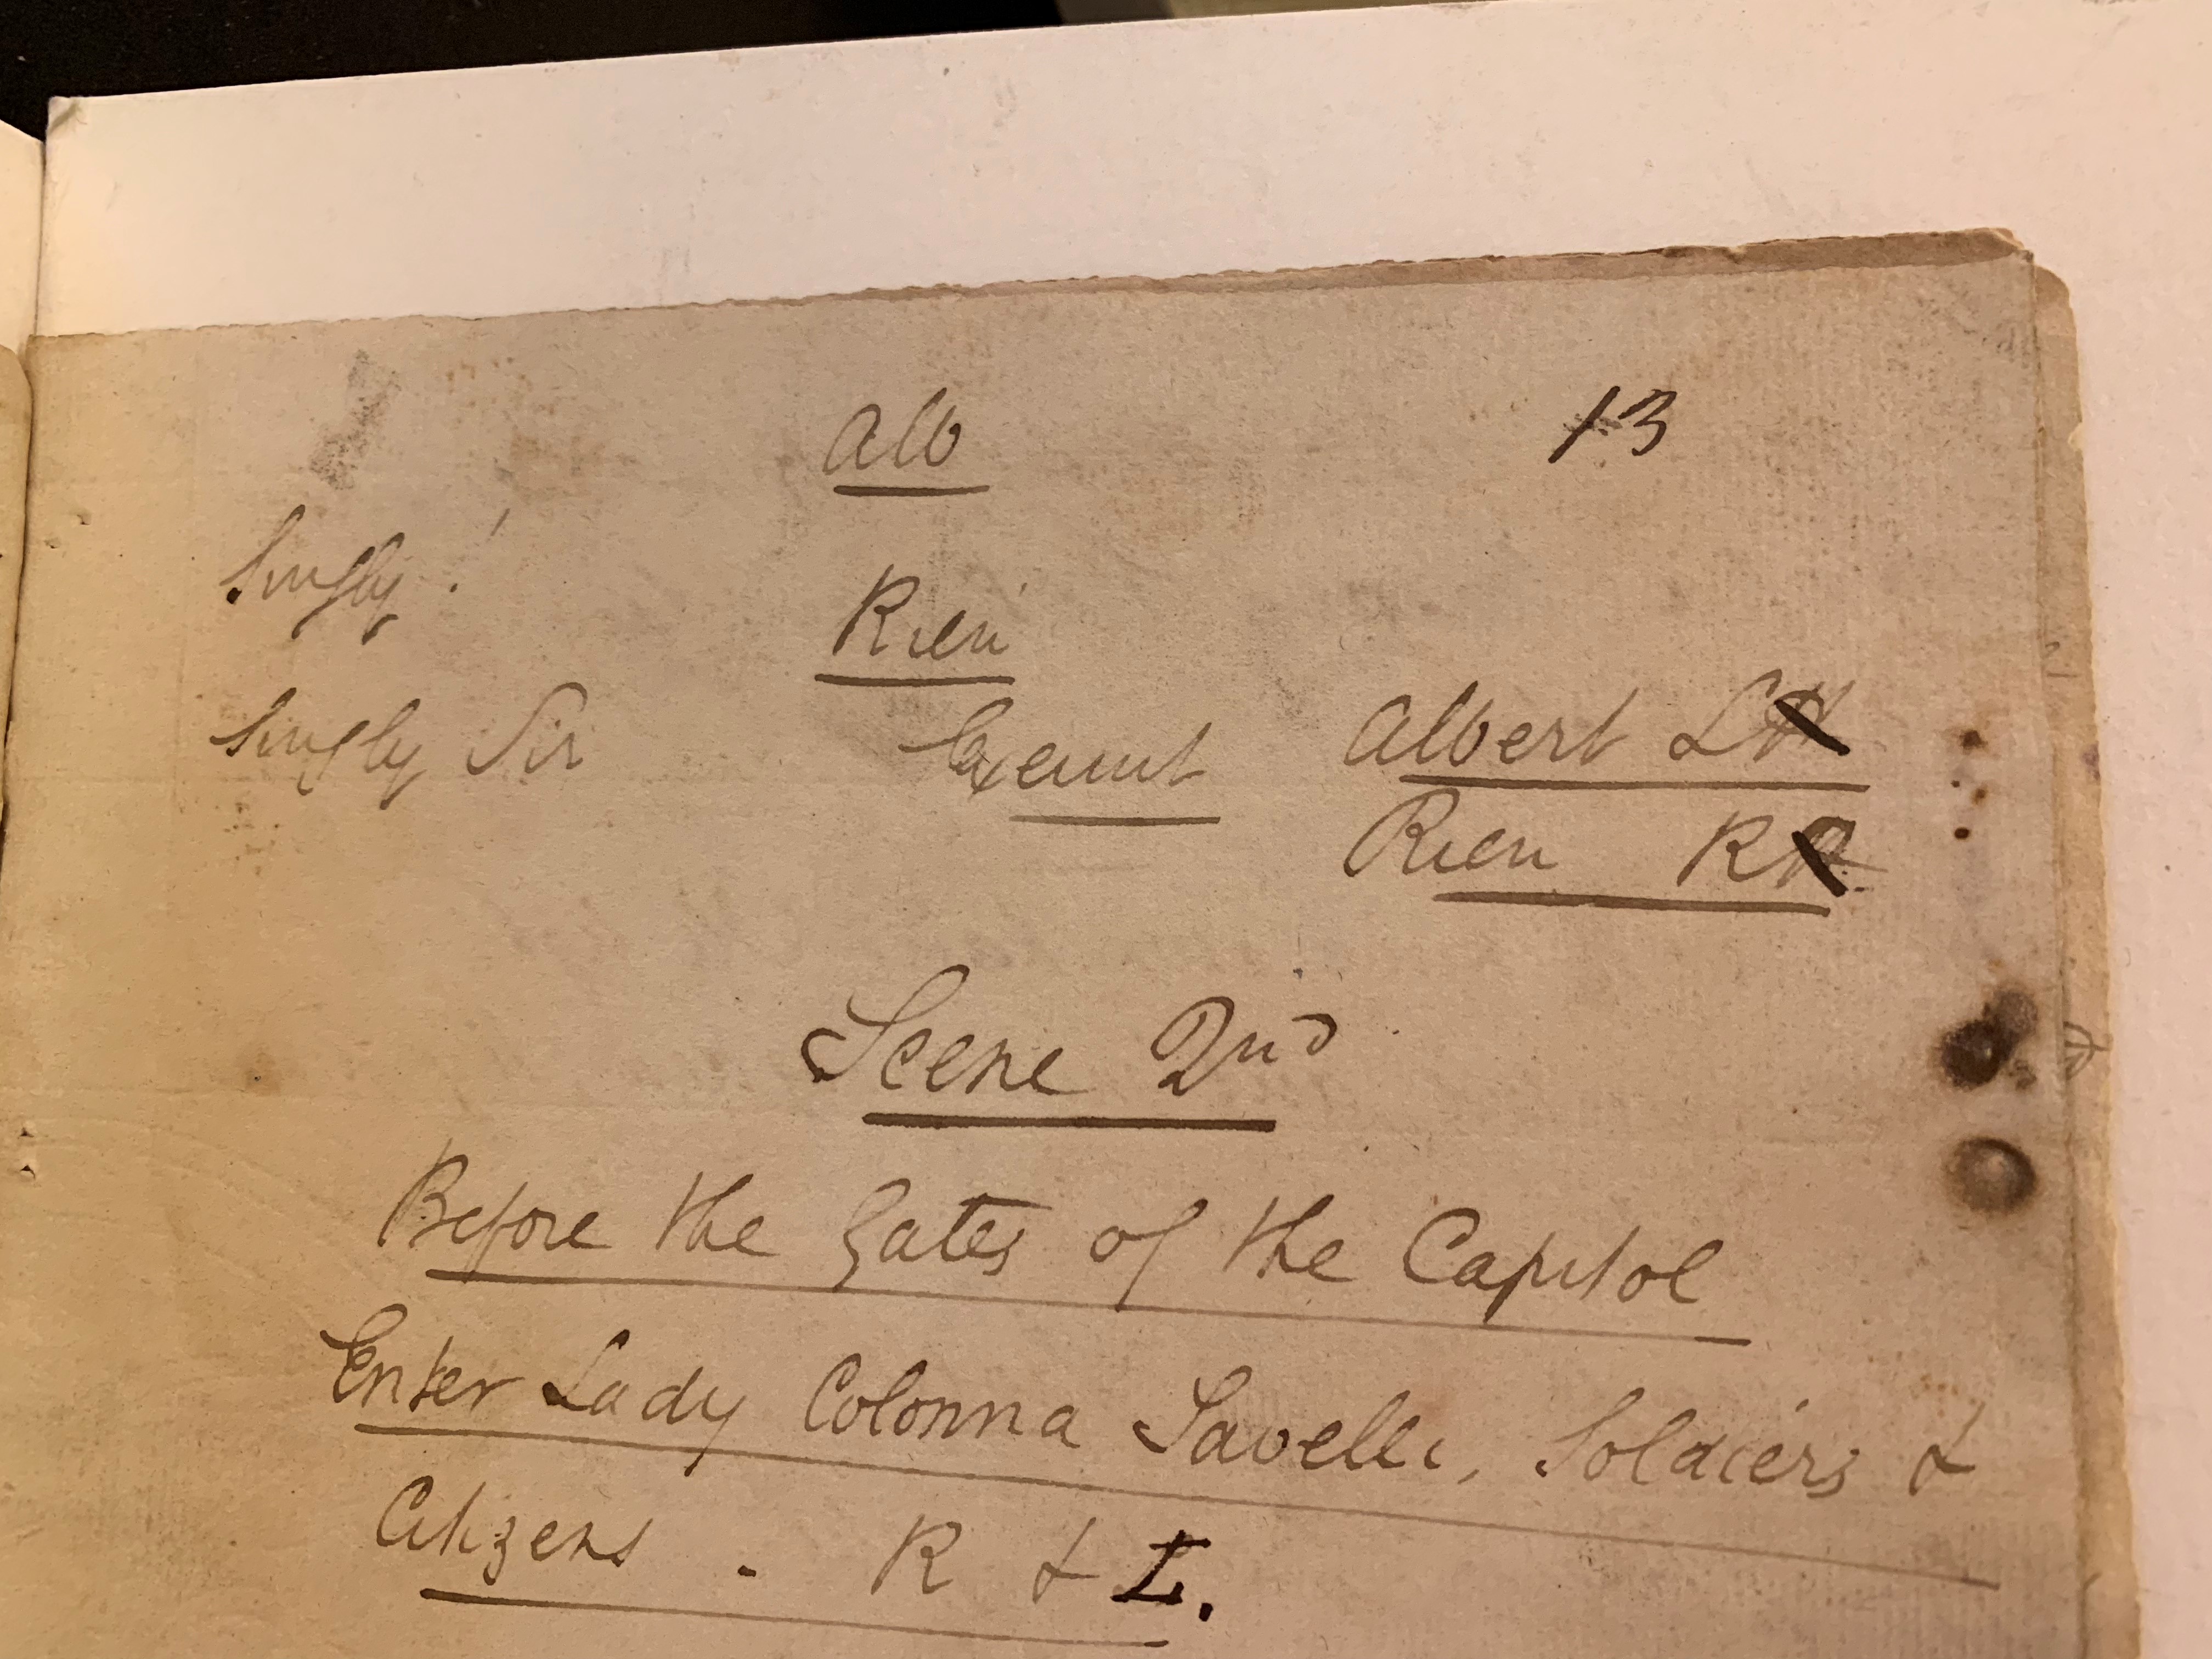 Alb
13
Singly!
Rien
Singly Sir
Exeunt Albert L
Rien R
Scene 2nd
Before the Gates of the Capitol
Enter Lady Colonna Savelli, Soldiers &
Citizens. R & L.